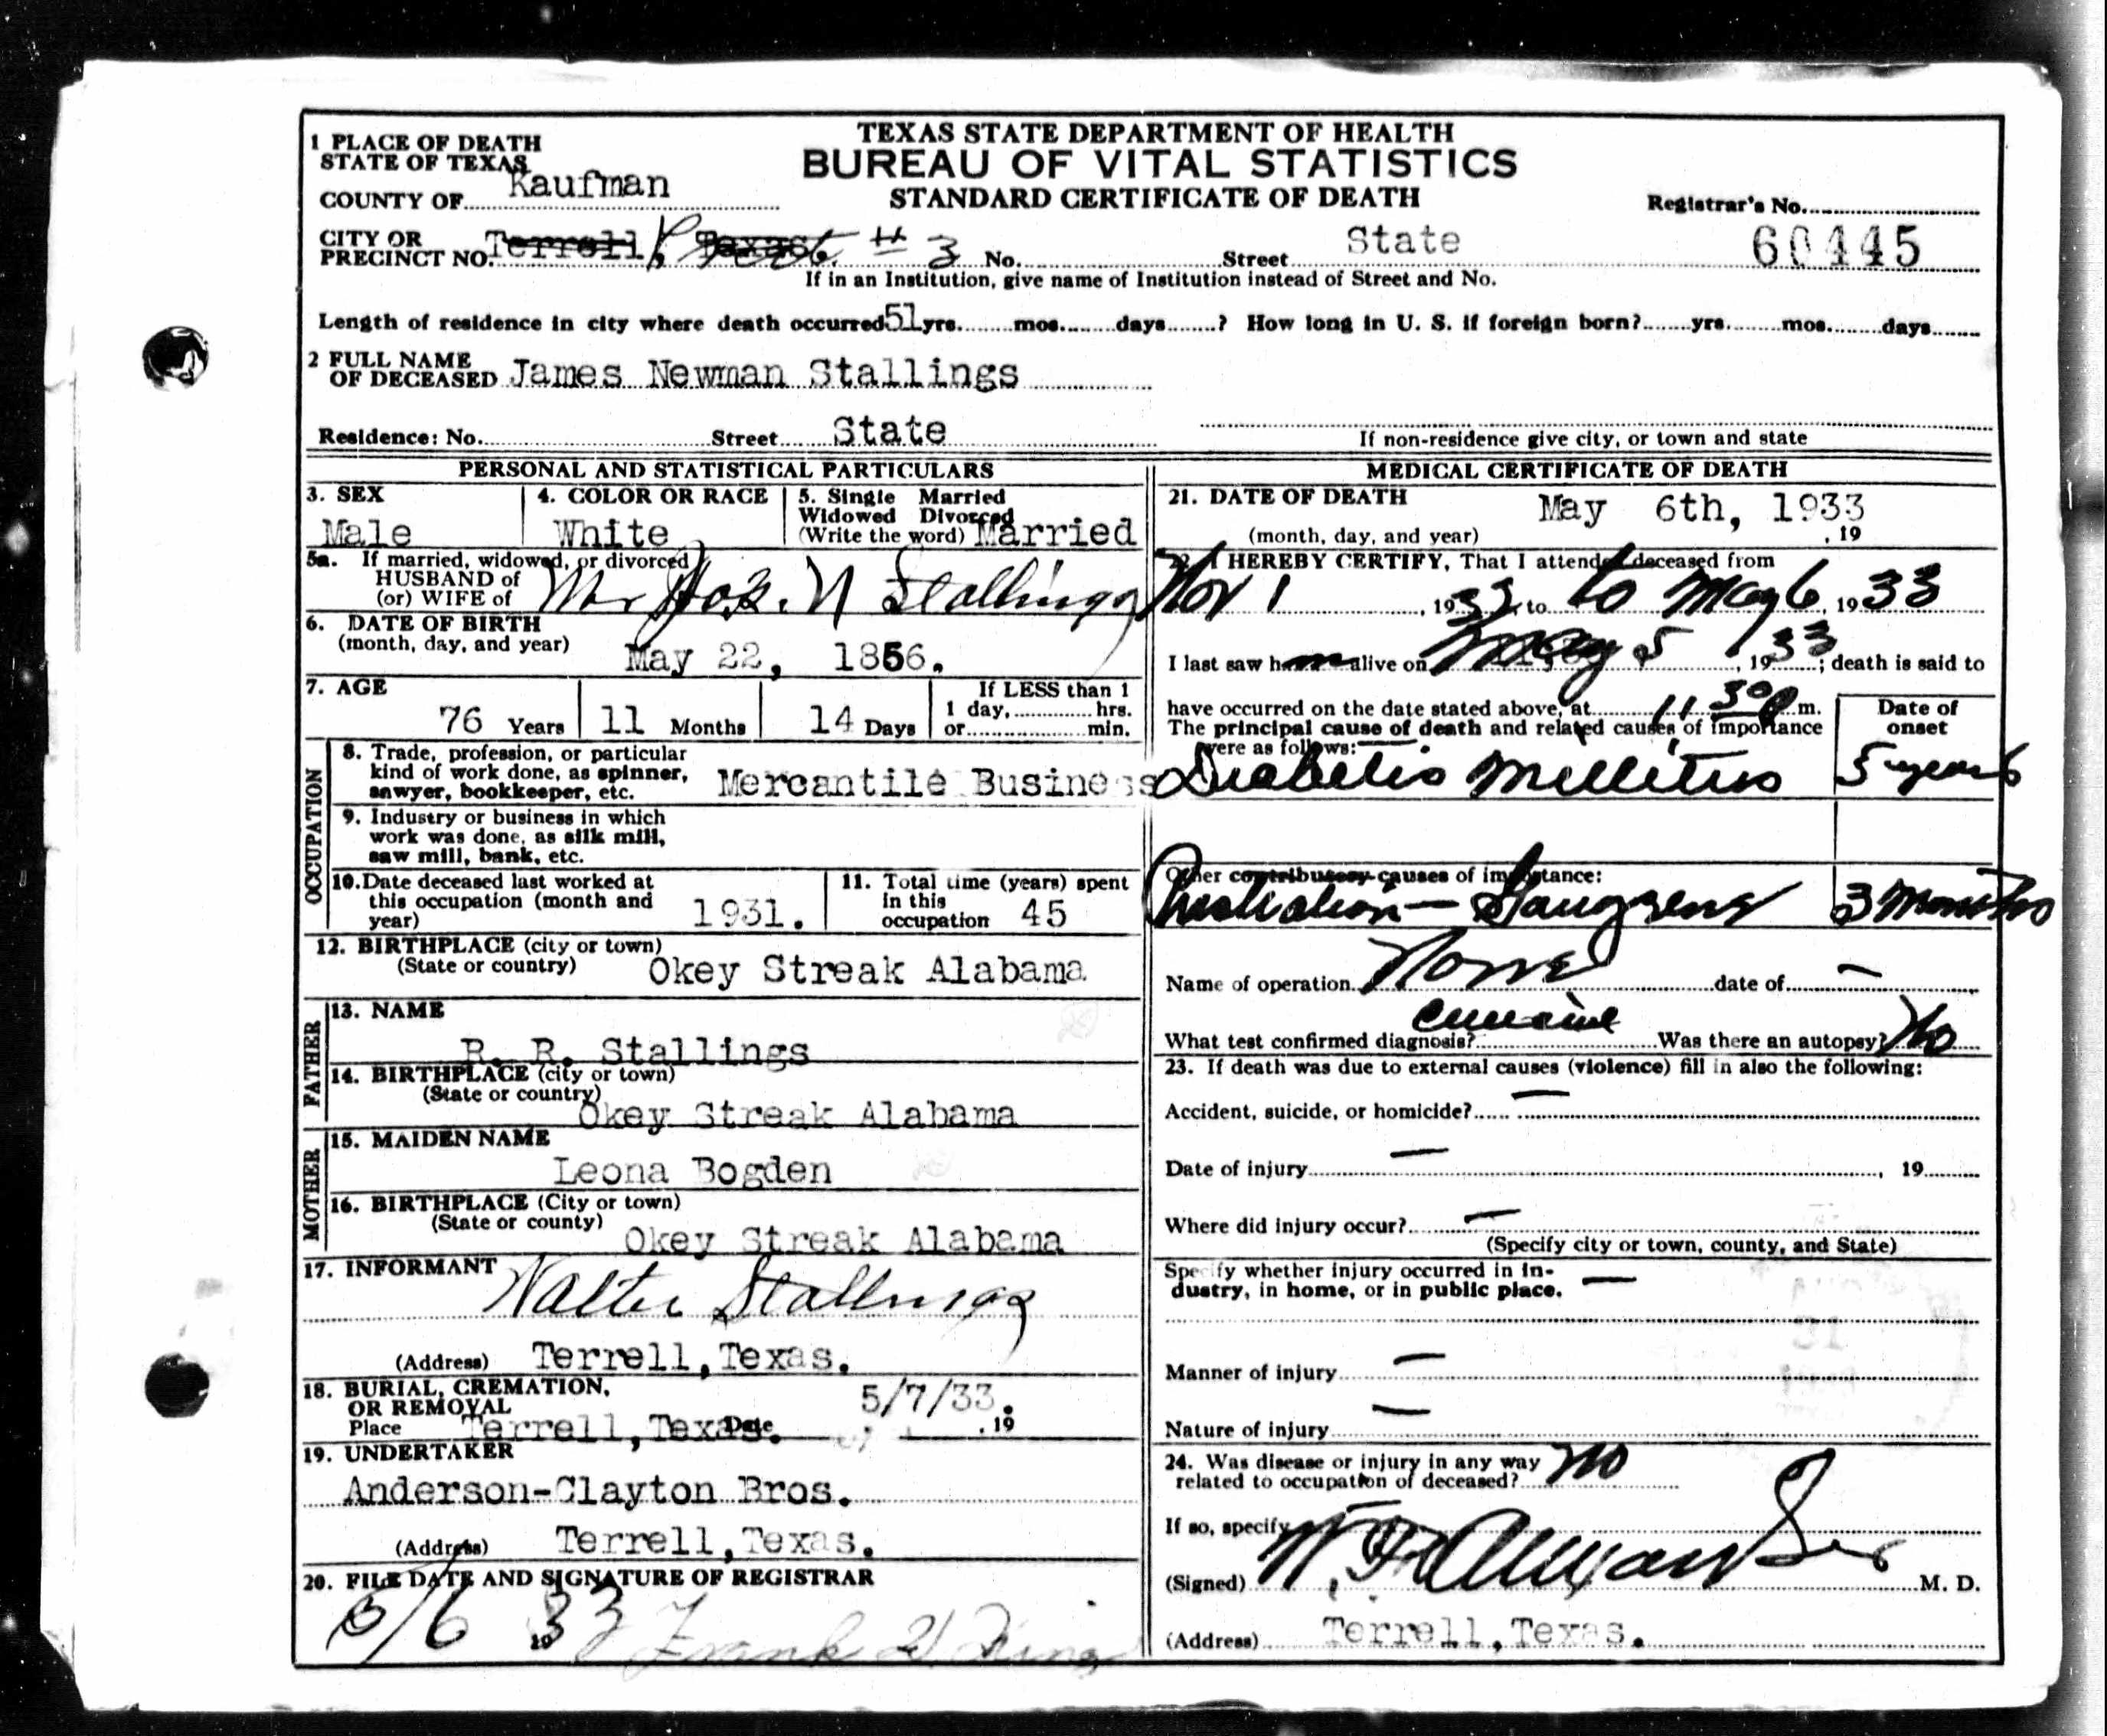 TEXAS STATE DEPARTMENT OF HEALTH
BUREAU OF VITAL STATISTICS
STANDARD CERTIFICATE OF DEATH
1 PLACE OF DEATH
STATE OF TEXAS
COUNTY OF Kaufman
Registrar's No.
CITY OR
PRECINCT NO. Terrell, Texas. # 3 No. Street State 60445
If in an Institution, give name of Institution instead of Street and No.
Length of residence in city where death occurred 51 yrs. mos. days ? How long in U. S. if foreign born? yrs. mos. days
2 FULL NAME
OF DECEASED James Newman Stallings
Residence: No. Street State
If non-residence give city, or town and state
PERSONAL AND STATISTICAL PARTICULARS
3. SEX
Male
4. COLOR OR RACE
White
5. Single Married
Widowed Divorced
(Write the word) Married
5a. If married, widowed, or divorced
HUSBAND of
(or) WIFE of N Stallings
6. DATE OF BIRTH
(month, day, and year) May 22, 1856.
7. AGE
76 Years 11 Months 14 Days
If LESS than 1
1 day, hrs.
or min.
OCCUPATION
8. Trade, profession, or particular
kind of work done, as spinner,
sawyer, bookkeeper, etc. Mercantile Business
9. Industry or business in which
work was done, as silk mill,
saw mill, bank, etc.
10. Date deceased last worked at
this occupation (month and
year) 1931.
11. Total time (years) spent
in this
occupation 45
12. BIRTHPLACE (city or town)
(State or country) Okey Streak Alabama
FATHER
13. NAME
R. R. Stallings
14. BIRTHPLACE (city or town)
(State or country)
Okey Streak Alabama
MOTHER
15. MAIDEN NAME
Leona Bogden
16. BIRTHPLACE (City or town)
(State or county) Okey Streak Alabama
17. INFORMANT Walter Stallings
(Address) Terrell, Texas.
18. BURIAL, CREMATION,
OR REMOVAL
Place Terrell, Texas. Date 5/7/33. , 19
19. UNDERTAKER
Anderson-Clayton Bros.
(Address) Terrell, Texas.
20. FILE DATE AND SIGNATURE OF REGISTRAR
5/6 1933 Frank
MEDICAL CERTIFICATE OF DEATH
21. DATE OF DEATH May 6th, 1933
(month, day, and year) , 19
22. I HEREBY CERTIFY, That I attended deceased from
Nov 1, 1932, to to May 6, 1933
I last saw him alive on May 5, 1933; death is said to
have occurred on the date stated above, at 11 30 p m.
The principal cause of death and related causes of importance
were as follows:
Date of
onset
Diabetis Mellitus 5 years
Other contributory causes of importance:
Gangrene 3 months
Name of operation None date of —
What test confirmed diagnosis? Was there an autopsy? No
23. If death was due to external causes (violence) fill in also the following:
Accident, suicide, or homicide? —
Date of injury — , 19
Where did injury occur? —
(Specify city or town, county, and State)
Specify whether injury occurred in in-
dustry, in home, or in public place. —
Manner of injury —
Nature of injury —
24. Was disease or injury in any way
related to occupation of deceased? No
If so, specify
(Signed) W. H. Alexander M. D.
(Address) Terrell, Texas.